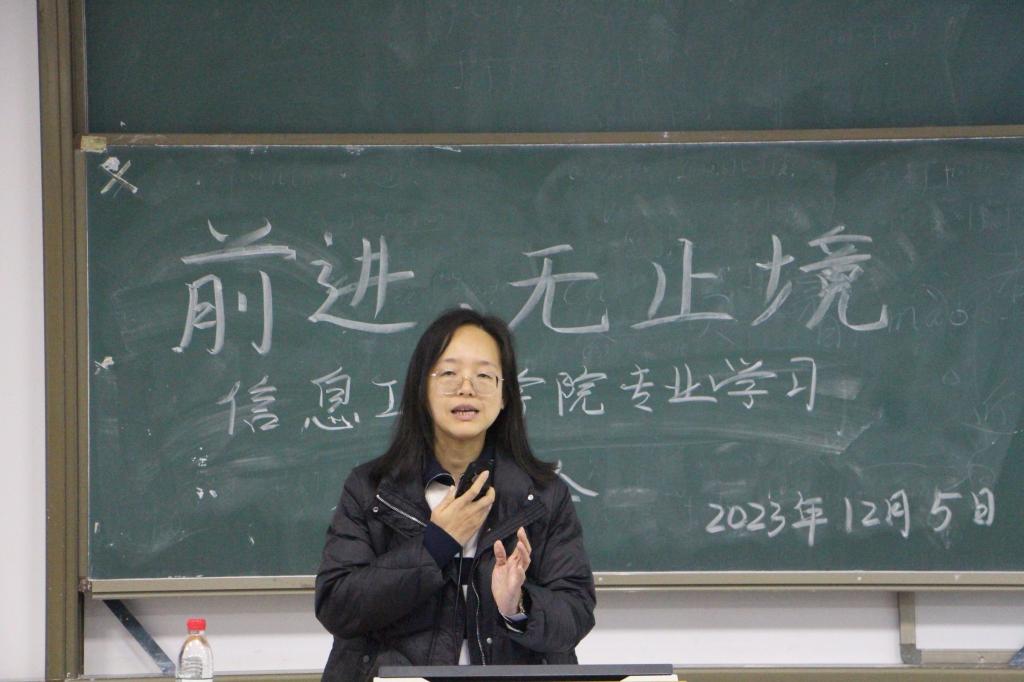 前进、无止境
信息工 学院专业学习
会
2023年12月5日